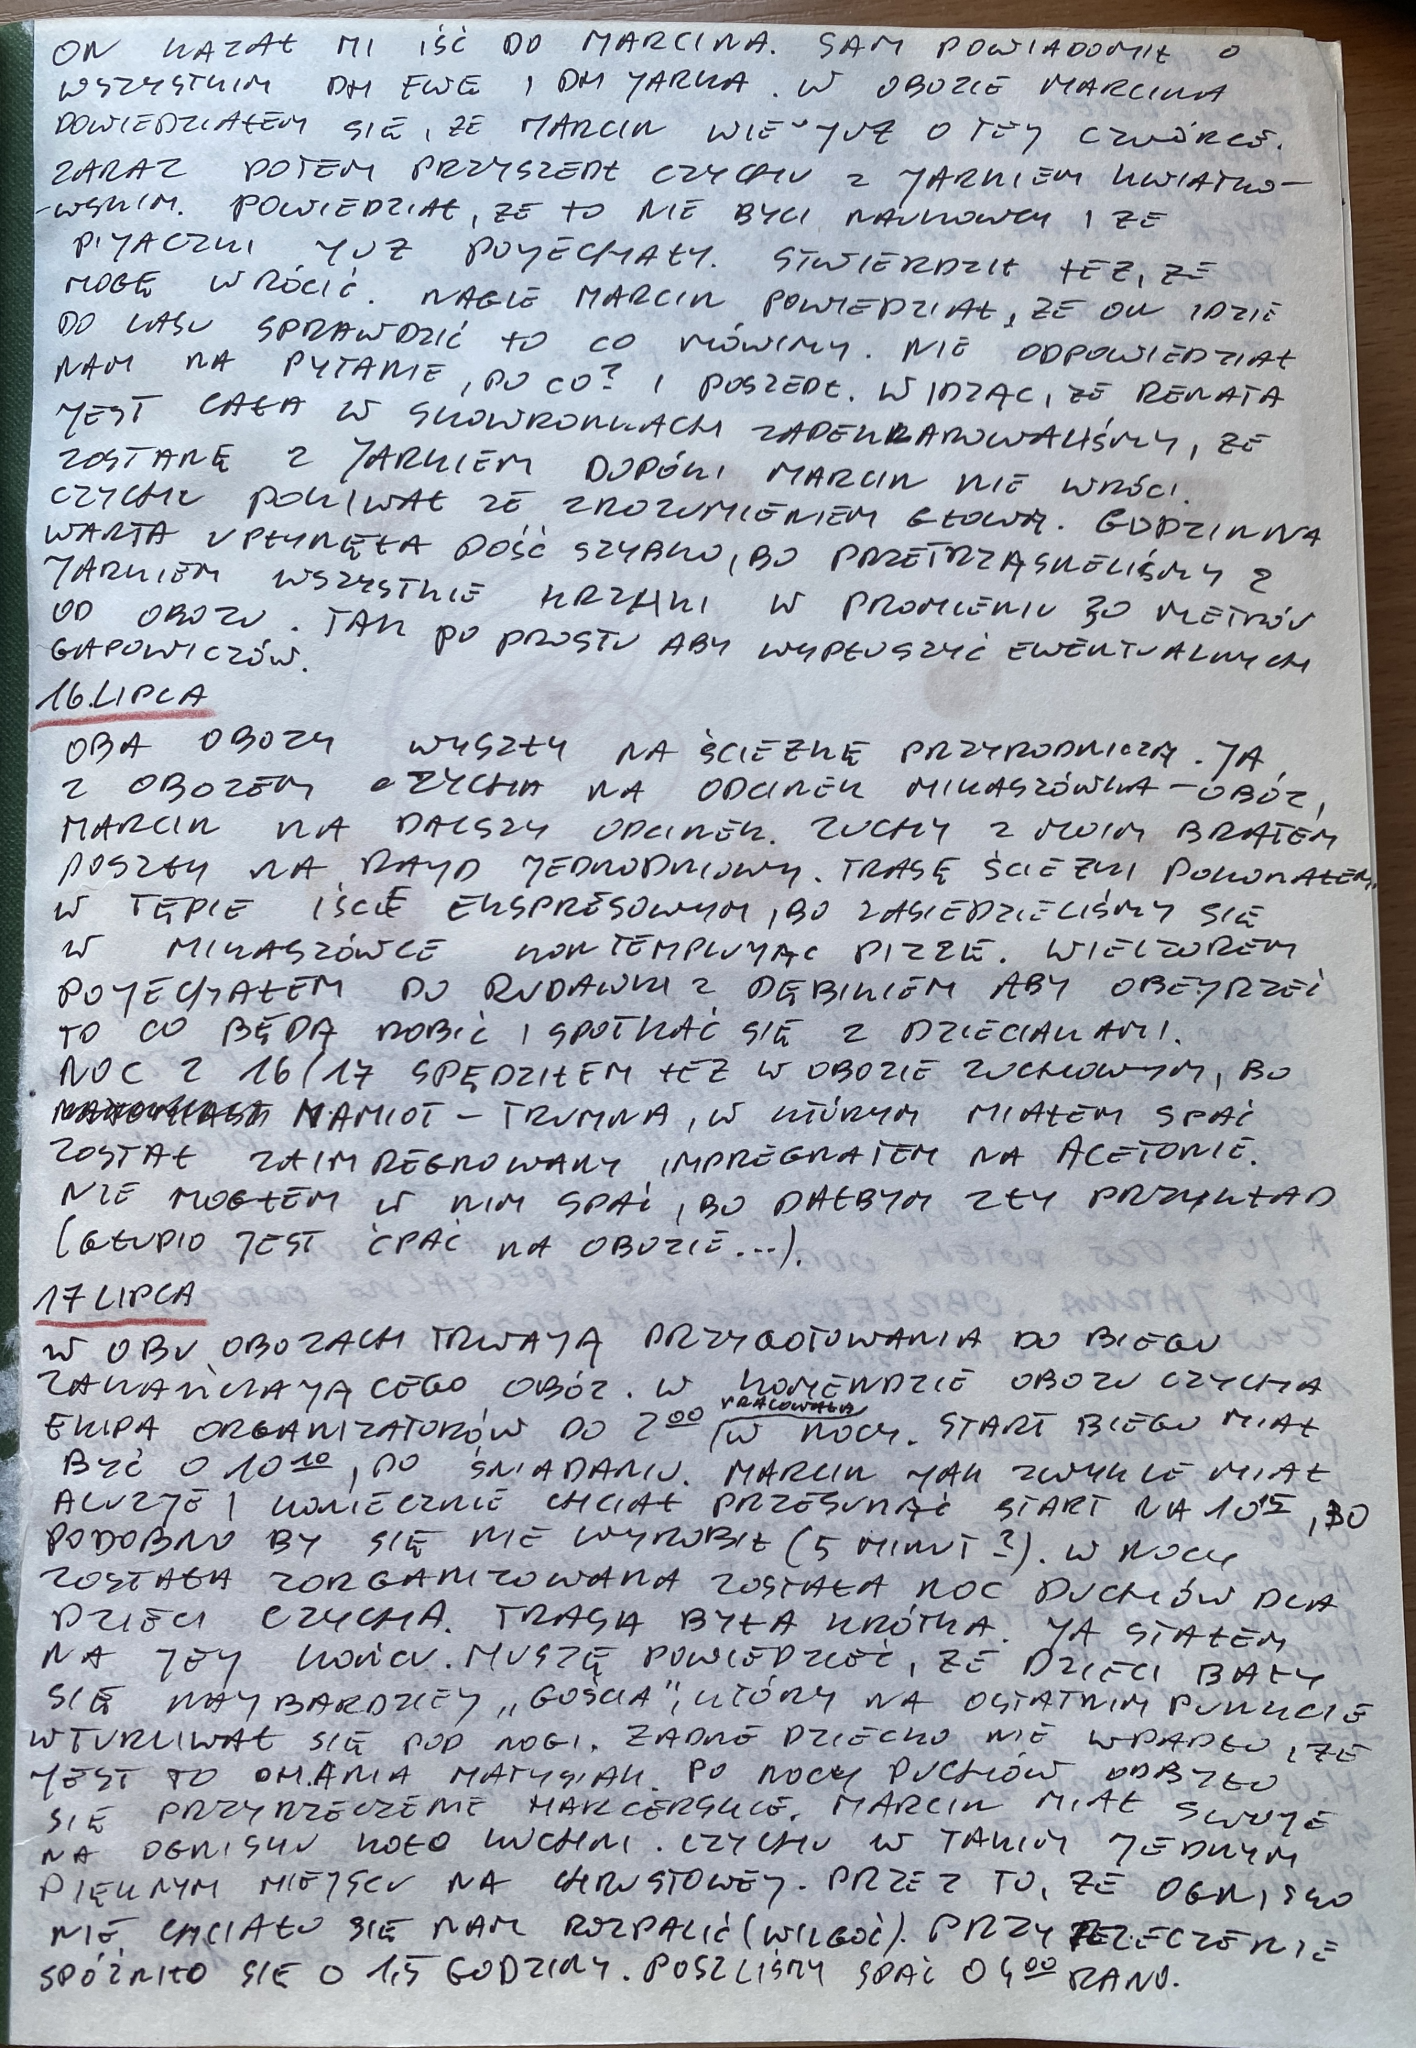 ON KAZAŁ MI IŚĆ DO MARCINA. SAM POWIADOMIŁ O
WSZYSTKIM DH EWĘ I DH JARKA. W OBOZIE MARCINA
DOWIEDZIAŁEM SIĘ, ZE MARCIN WIE JUZ O TEJ CZWÓRCE.
ZARAZ POTEM PRZYSZEDŁ CZYCHU Z JARKIEM KWIATKO-
-WSKIM. POWIEDZIAŁ, ZE TO NIE BYLI NAUKOWCY I ZE
PIJACZKI JUZ POJECHAŁY. STWIERDZIŁ TEZ, ZE
MOGĘ WRÓCIĆ. NAGLE MARCIN POWIEDZIAŁ, ZE ON IDZIE
DO LASU SPRAWDZIĆ TO CO MÓWIMY. NIE ODPOWIEDZIAŁ
NAM NA PYTANIE, PO CO? I POSZEDŁ. WIDZĄC, ZE RENATA
JEST CAŁA W SKOWRONKACH ZADEKLAROWALIŚMY, ZE
ZOSTANĘ Z JARKIEM DOPÓKI MARCIN NIE WRÓCI.
CZYCHU POKIWAŁ ZE ZROZUMIENIEM GŁOWĄ. GODZINNA
WARTA UPŁYNĘŁA DOŚĆ SZYBKO, BO PRZETRZĄSNELIŚMY Z
JARKIEM WSZYSTKIE KRZAKI W PROMIENIU 30 METRÓW
OD OBOZU. TAK PO PROSTU ABY WYPŁOSZYĆ EWENTUALNYCH
GAPOWICZÓW.
16.LIPCA
OBA OBOZY WYSZŁY NA ŚCIEZKĘ PRZYRODNICZĄ. JA
Z OBOZEM CZYCHA NA ODCINEK MIKASZÓWKA – OBÓZ,
MARCIN NA DALSZY ODCINEK. ZUCHY Z MOIM BRATEM
POSZŁY NA RAJD JEDNODNIOWY. TRASĘ ŚCIEZKI POKONAŁEM
W TĘPIE IŚCIE EKSPRESOWYM, BO ZASIEDZIELIŚMY SIĘ
W MIKASZÓWCE KONTEMPLUJĄC PIZZE. WIECZOREM
POJECHAŁEM DO RUDAWKI Z DĘBIKIEM ABY OBEJRZEĆ
TO CO BĘDĄ ROBIĆ I SPOTKAĆ SIĘ Z DZIECIAKAMI.
NOC Z 16/17 SPĘDZIŁEM TEZ W OBOZIE ZUCHOWYM, BO
NAMIOT – TRUMNA, W KTÓRYM MIAŁEM SPAĆ
ZOSTAŁ ZAIMPREGNOWANY IMPREGNATEM NA ACETONIE.
NIE MOGŁEM W NIM SPAĆ, BO DAŁBYM ZŁY PRZYKŁAD
(GŁUPIO JEST ĆPAĆ NA OBOZIE...).
17 LIPCA
W OBU OBOZACH TRWAJĄ PRZYGOTOWANIA DO BIEGU
ZAKAŃCZAJĄCEGO OBÓZ. W KOMENDZIE OBOZU CZYCHA
EKIPA ORGANIZATORÓW DO 2⁰⁰ PRACOWAŁA W NOCY. START BIEGU MIAŁ
BYĆ O 10¹⁰, PO ŚNIADANIU. MARCIN JAK ZWYKLE MIAŁ
ALUZJE I KONIECZNIE CHCIAŁ PRZESUNĄĆ START NA 10¹⁵, BO
PODOBNO BY SIĘ NIE WYROBIŁ (5 MINUT?). W NOCY
ZOSTAŁA ZORGANIZOWANA ZOSTAŁA NOC DUCHÓW DLA
DZIECI CZYCHA. TRASA BYŁA KRÓTKA. JA STAŁEM
NA JEJ KOŃCU. MUSZĘ POWIEDZIEĆ, ZE DZIECI BAŁY
SIĘ NAJBARDZIEJ „GOŚCIA", KTÓRY NA OSTATNIM PUNKCIE
WTURLIWAŁ SIĘ POD NOGI. ZADNE DZIECKO NIE WPADŁO, ZE
JEST TO DH.ANIA MATYSIAK. PO NOCY DUCHÓW ODBYŁO
SIĘ PRZYRZECZENIE HARCERSKIE. MARCIN MIAŁ SWOJE
NA OGNISKU KOŁO KUCHNI. CZYCHU W TAKIM JEDNYM
PIĘKNYM MIEJSCU NA CHRUSTOWEJ. PRZEZ TO, ZE OGNISKO
NIE CHCIAŁO SIĘ NAM ROZPALIĆ (WILGOĆ). PRZYRZECZENIE
SPÓŹNIŁO SIĘ O 1,5 GODZINY. POSZLIŚMY SPAĆ O 4⁰⁰ RANO.